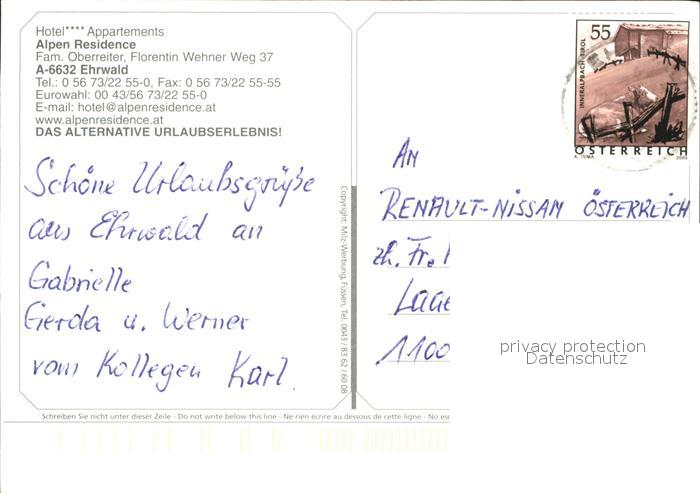 Hotel**** Appartements
Alpen Residence
Fam. Oberreiter, Florentin Wehner Weg 37
A-6632 Ehrwald
Tel.: 0 56 73/22 55-0, Fax: 0 56 73/22 55-55
Eurowahl: 00 43/56 73/22 55-0
E-mail: hotel@alpenresidence.at
www.alpenresidence.at
DAS ALTERNATIVE URLAUBSERLEBNIS!
Schöne Urlaubsgrüße
aus Ehrwald an
Gabrielle
Gerda u. Werner
vom Kollegen Karl.
Copyright: Milz-Werbung, Füssen, Tel. 0043 / 83 62 / 60 08
55
INNERALPBACH · TIROL
ÖSTERREICH
A. TUMA 2003
An
RENAULT-NISSAN ÖSTERREICH
zh. Fr.
1100
privacy protection
Datenschutz
Schreiben Sie nicht unter dieser Zeile - Do not write below this line - Ne rien écrire au dessous de cette ligne - No esc